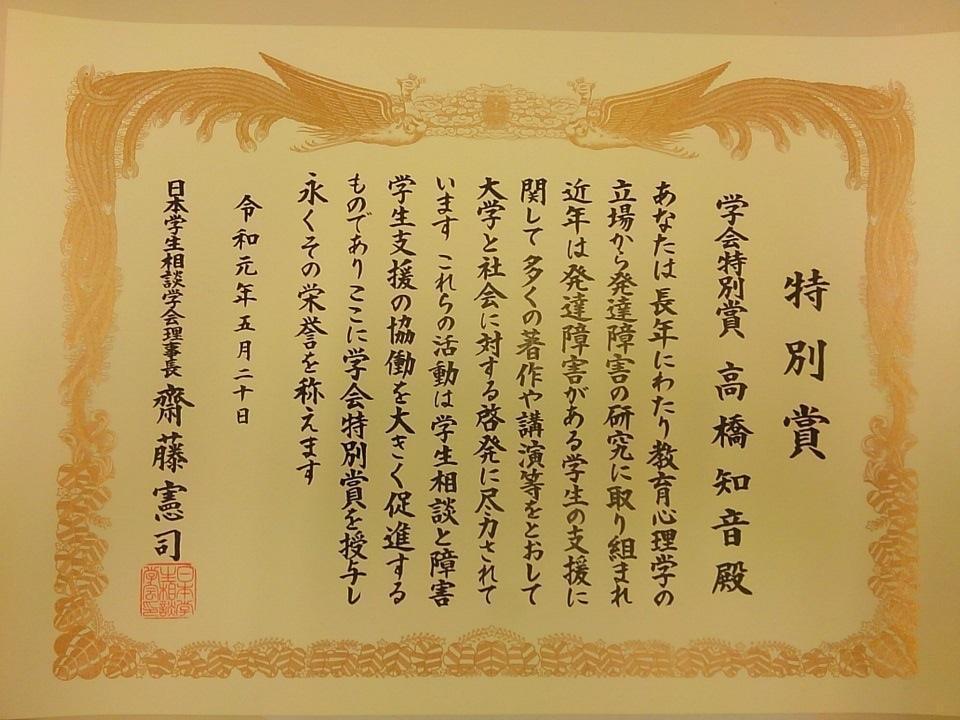 特別賞
学会特別賞 高橋知音殿
あなたは長年にわたり教育心理学の
立場から発達障害の研究に取り組まれ
近年は発達障害がある学生の支援に
関して多くの著作や講演等をとおして
大学と社会に対する啓発に尽力されて
います これらの活動は学生相談と障害
学生支援の協働を大きく促進する
ものでありここに学会特別賞を授与し
永くその栄誉を称えます
令和元年五月二十日
日本学生相談学会理事長 齋藤憲司
日本学
生相談
学会印